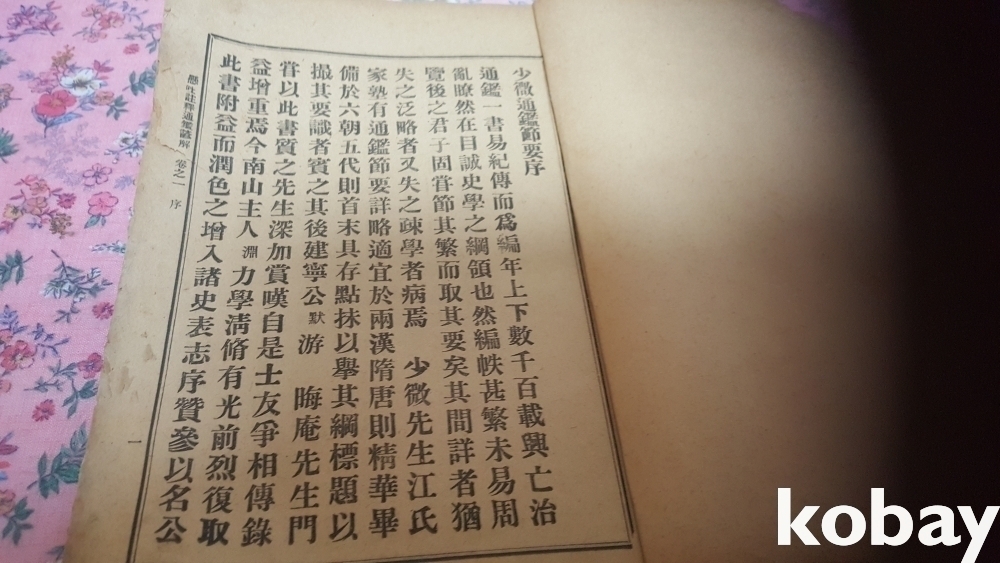 少微通鑑節要序
通鑑一書易紀傳而爲編年上下數千百載興亡治
亂瞭然在目誠史學之綱領也然編帙甚繁未易周
覽後之君子固甞節其繁而取其要矣其間詳者猶
失之泛略者又失之疎學者病焉 少微先生江氏
家塾有通鑑節要詳略適宜於兩漢隋唐則精華畢
備於六朝五代則首末具存點抹以擧其綱標題以
撮其要識者賓之其後建寧公默游 晦庵先生門
甞以此書質之先生深加賞嘆自是士友爭相傳錄
益增重焉今南山主人淵力學淸脩有光前烈復取
此書附益而潤色之增入諸史表志序贊參以名公
懸吐註釋通鑑諺解 卷之一 序
一
kobay